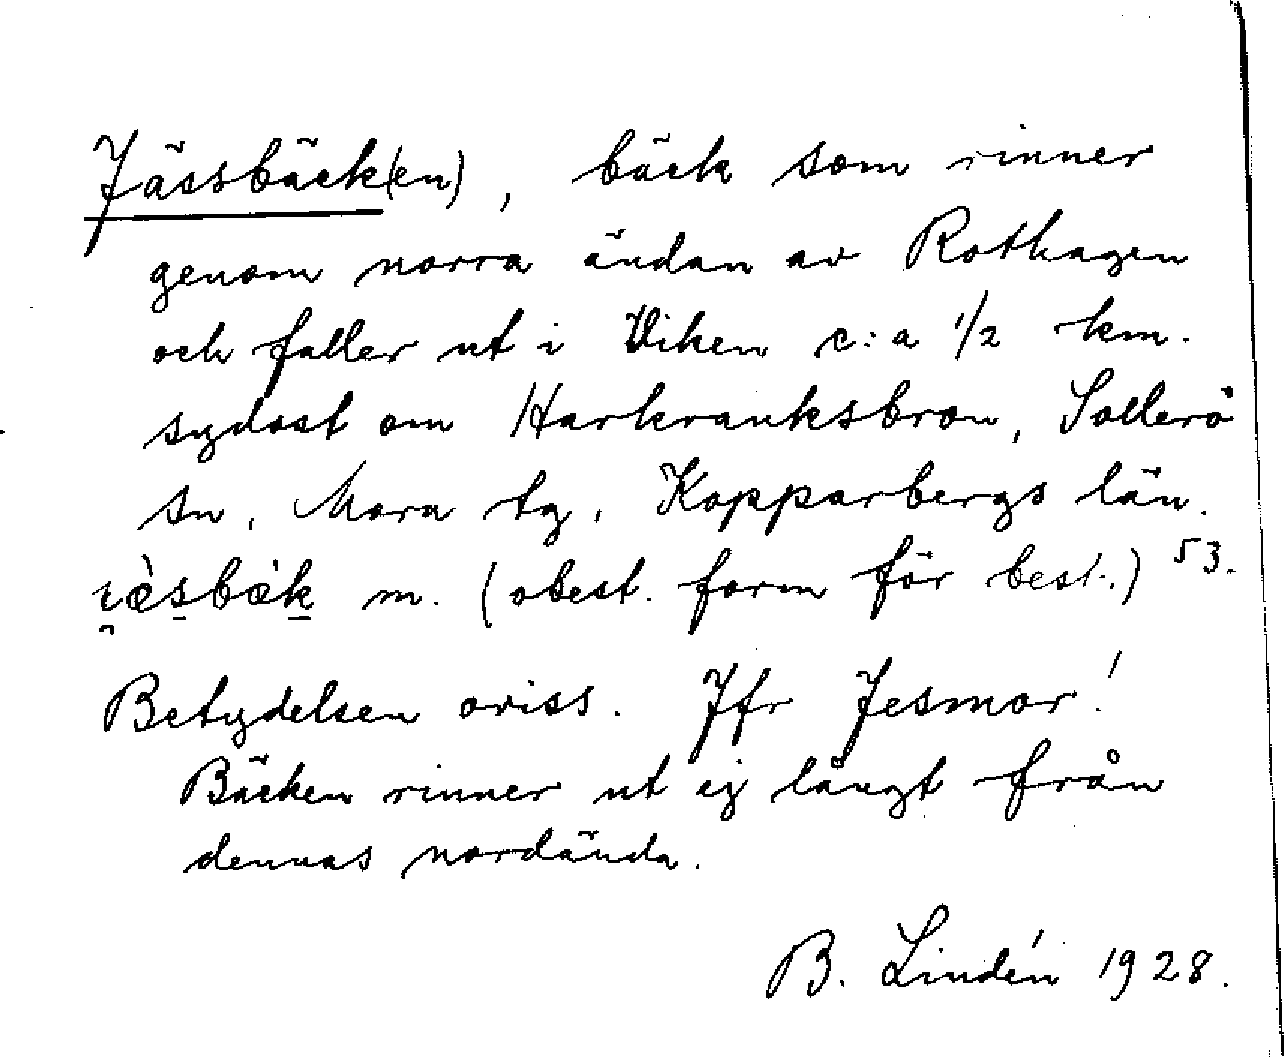 Jässbäck(en), bäck som rinner
genom norra ändan av Rothagen
och faller ut i Viken c:a 1/2 km.
sydost om Harkranksbron, Sollerö
sn, Mora tg, Kopparbergs län.
i̯æ̀sbæ̀k m. (obest. form för best.) 53.
Betydelsen oviss. Jfr Jesmor!
Bäcken rinner ut ej långt från
dennas nordända.
B. Lindén 1928.